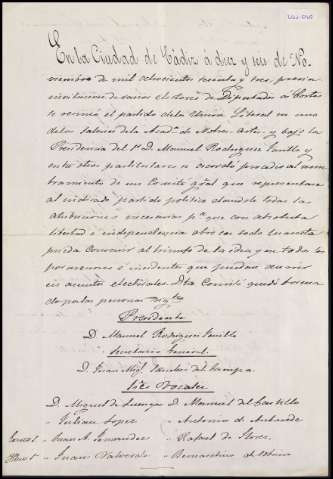 En la Ciudad de Cádiz á diez y seis de No-
viembre de mil ochocientos sesenta y tres, previa
invitacion de varios electores de Diputados á Cortes
se reunió el partido de la Union Liberal en uno
de los salones de la Acad.ª de Nobles Artes, y bajo la
Presidencia del Sr. D. Manuel Rodriguez
entre otros particulares se acordó proceder al nom-
bramiento de un Comité gral. que representara
al indicado partido politico dandole todas las
atribuciones necesarias pª que con absoluta
libertad é independencia obre en todo cuanto
pueda convenir al triunfo de la idea y en todos los
pormenores é incidentes que puedan ocurrir
en asuntos electorales. Dho Comité quedó forma-
do por las personas sigtes
Presidente
D. Manuel Rodriguez
Secretario General
D. Juan Migl. Sanchez de la Campa
Vocales
D. Miguel de D. Manuel del Castillo
" Julian Lopez " Antonio de
" Juan A. Fernandez " Rafael de Flores
" Juan Valverde " Bernardino de